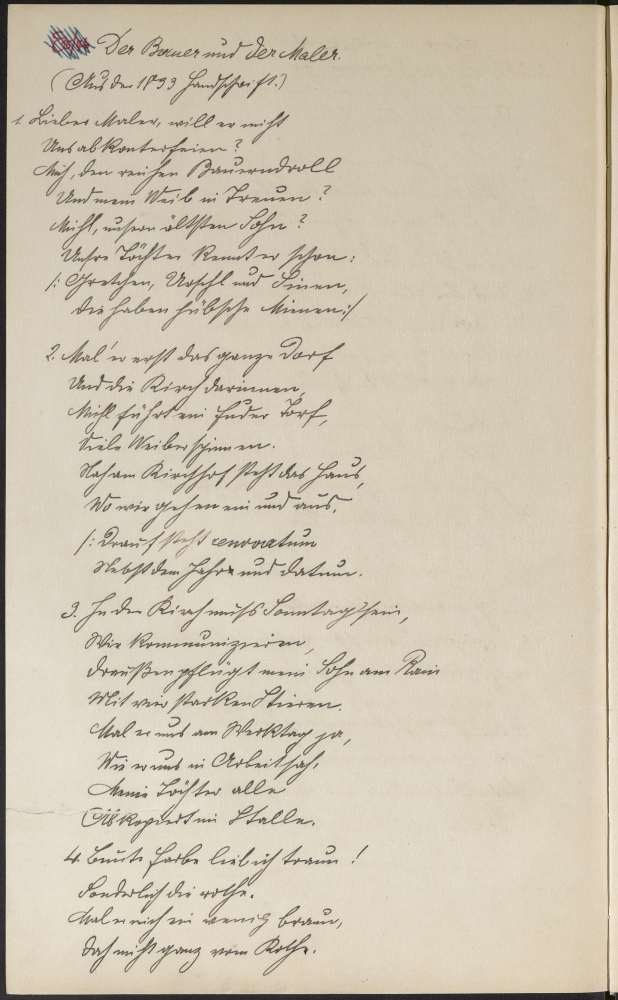 Der Bauer und der Maler.
(Aus der 1893 Handschrift.)
1. Lieber Maler, will er nicht
Uns abkonterfeien?
Mich, den reichen Bauerndroll
Und mein Weib in Treuen?
Michl, unsern ältsten Sohn?
Unsre Töchter kennt er schon:
/: Gretchen, Urschl und Sinen,
die haben hübsche Mienen :/
2. Mal' er erst das ganze Dorf
Und die Kirch darinnen,
Michl führt ein Fuder Torf,
Viele Weiber spinnen.
Nah am Kirchhof steht das Haus,
Wo wir gehen ein und aus,
/: Drauf steht renovatum
Nebst dem Jahr und datum.
3. In der Kirch muss Sonntag sein,
Wir kommunizieren,
Draußen pflügt mein Sohn am Rain
Mit vier starken Stieren.
Mal er uns am Werktag ja,
Wie er uns in Arbeit sah,
Meine Töchter alle
kopiert im Stalle.
4. Bunte Farbe lieb ich traun!
Sonderlich die rothe.
Mal er mich ein wenig braun,
Das nicht ganz vom Rothe.